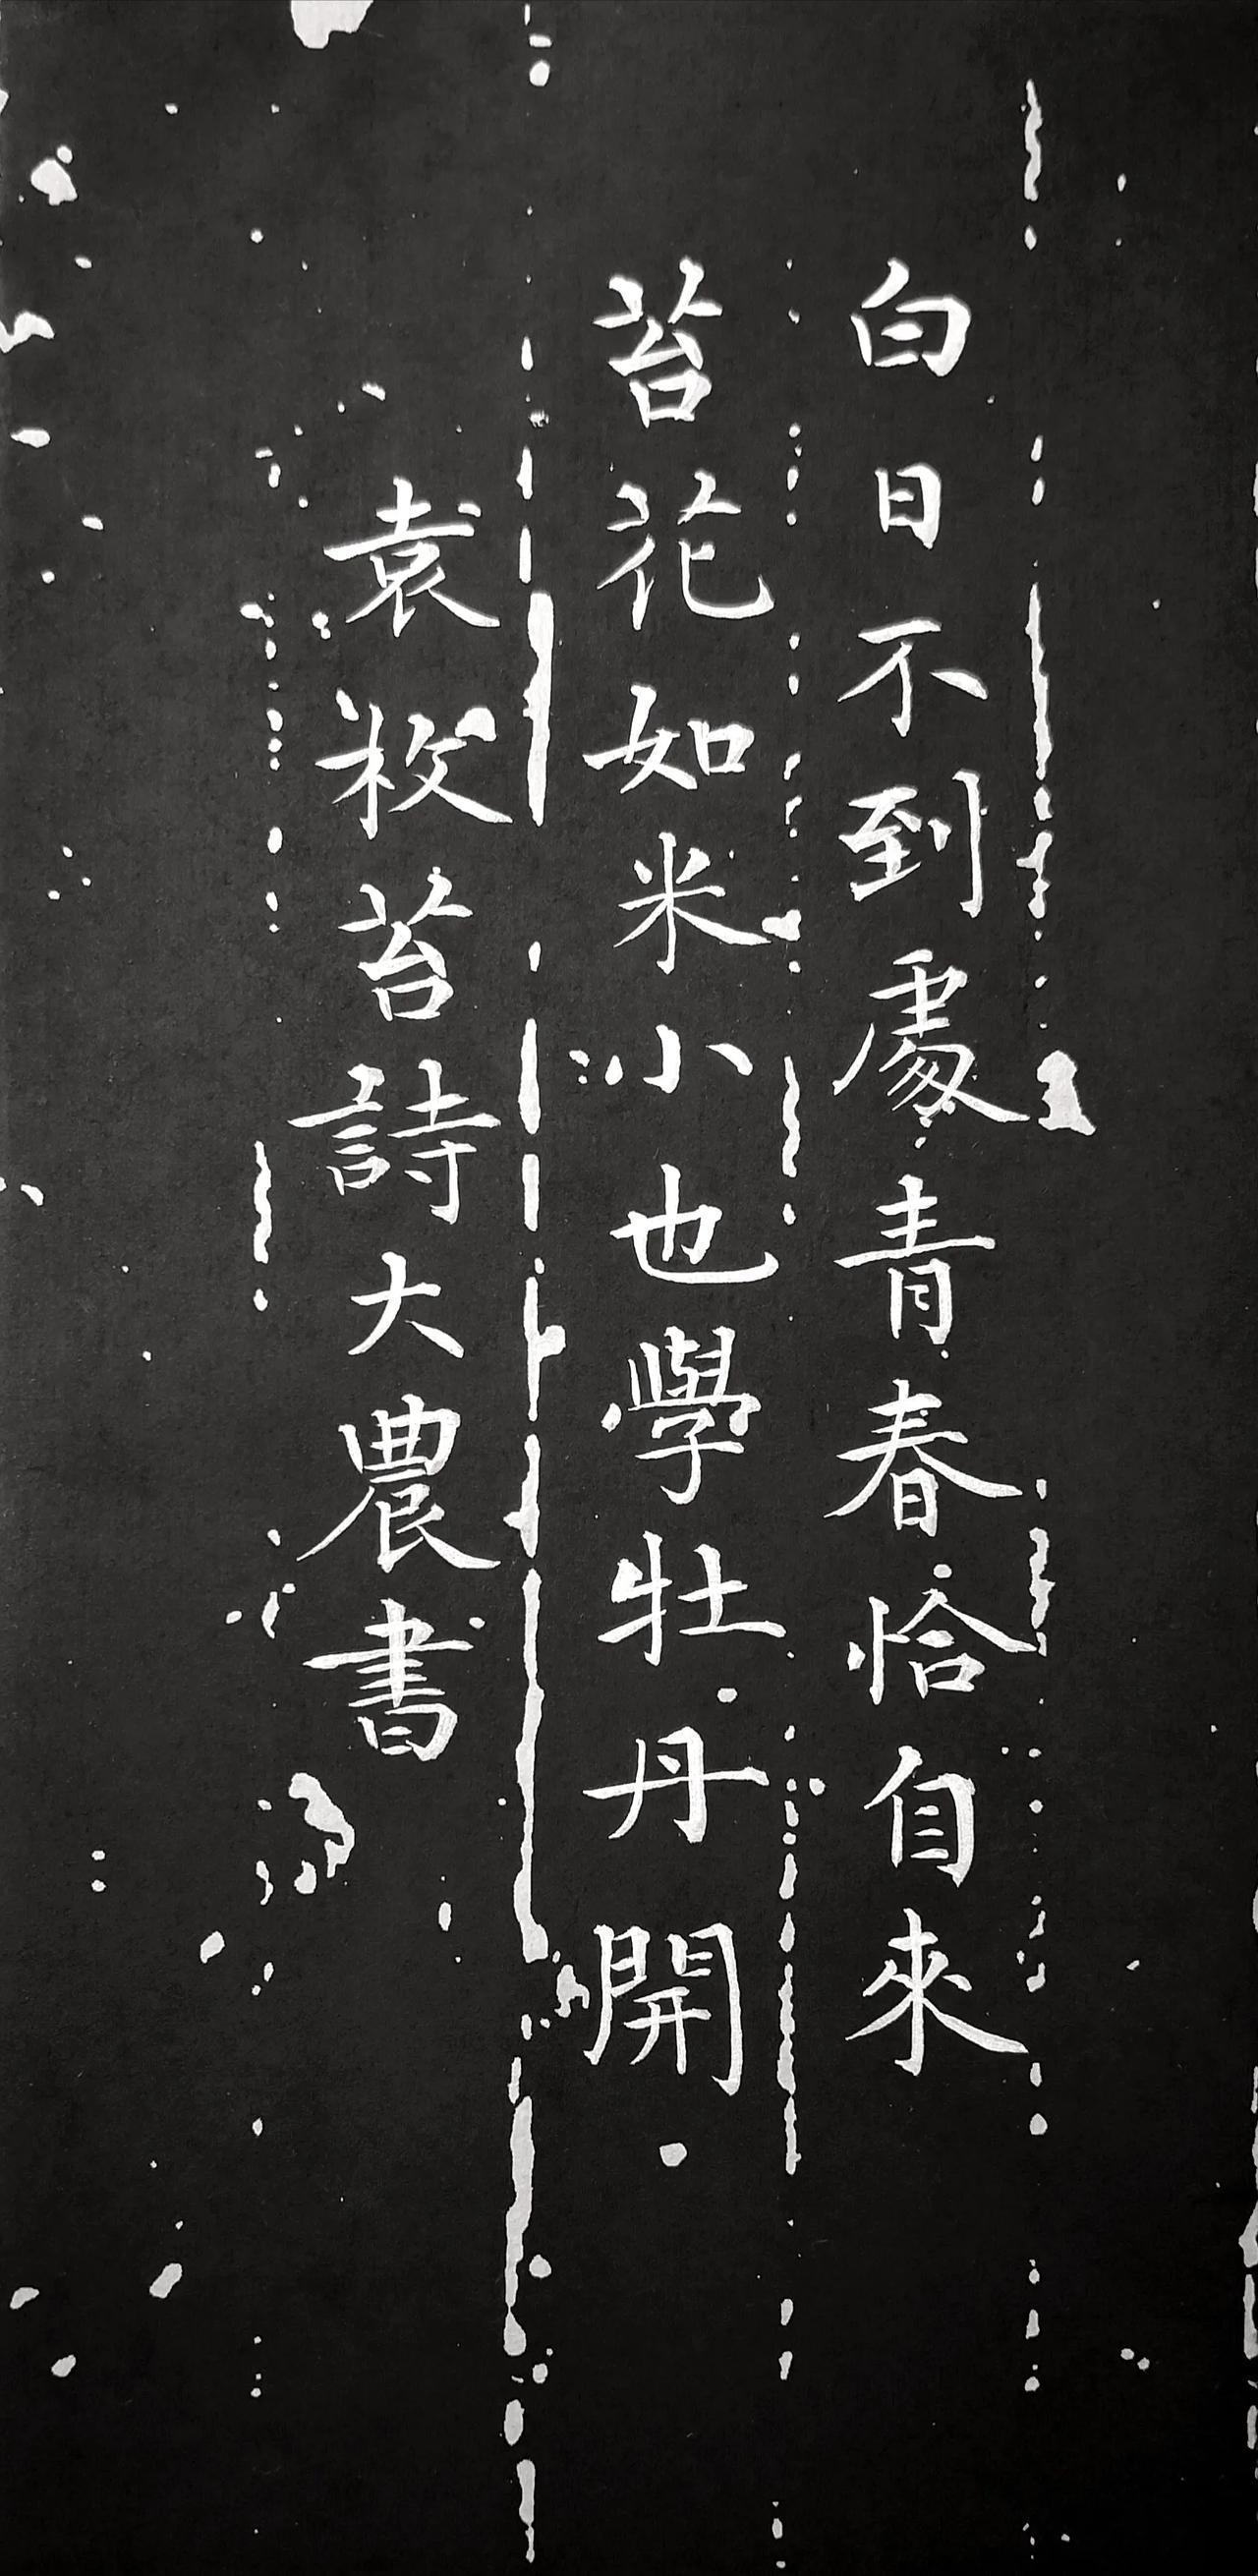 白日不到處青春恰自來
苔花如米小也學牡丹開
袁枚苔詩大農書